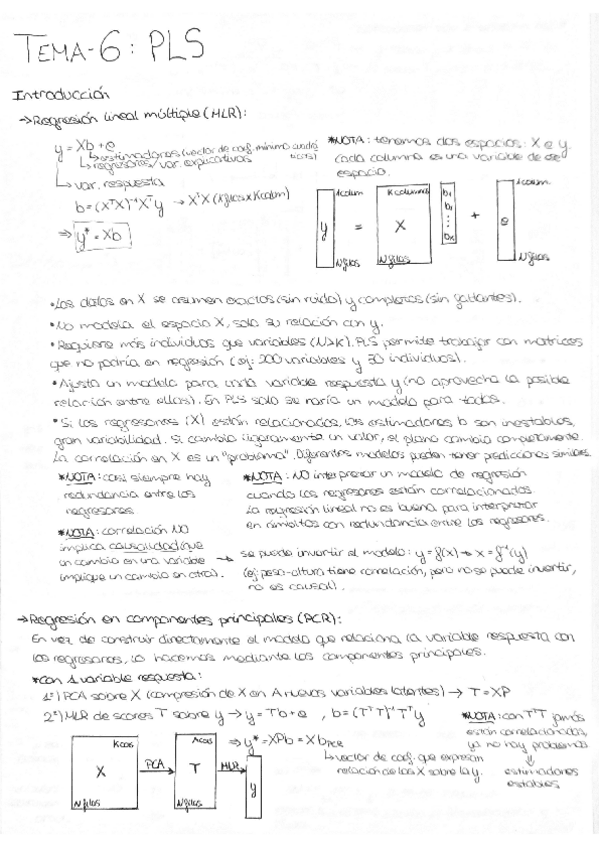 TEMA-6: PLS
Introducción
→Regresión lineal múltiple (MLR):
y = Xb + e
↳estimadores (vector de coef. mínimo cuadráticos)
↳regresores/var. explicativas
↳var. respuesta
b = (XᵀX)⁻¹Xᵀy → XᵀX (Kfilas x Kcolum)
⇒ y* = Xb
*NOTA: tenemos dos espacios: X e y.
Cada columna es una variable de ese
espacio.
1 colum
y
N filas
=
K colum
X
N filas
b₁
b₁
⋮
bₖ
+
1 colum
e
N filas
•Los datos en X se asumen exactos (sin ruido) y completos (sin faltantes).
•No modela el espacio X, solo su relación con y.
•Requiere más individuos que variables (N>K). PLS permite trabajar con matrices
que no podría en regresión (ej: 200 variables y 30 individuos).
•Ajusta un modelo para cada variable respuesta y (no aprovecha la posible
relación entre ellas). En PLS solo se haría un modelo para todas.
•Si los regresores (X) están relacionados, los estimadores b son inestables,
gran variabilidad. Si cambia ligeramente un valor, el plano cambia completamente.
La correlación en X es un "problema". Diferentes modelos pueden tener predicciones similares.
*NOTA: casi siempre hay
redundancia entre los
regresores
*NOTA: NO interpretar un modelo de regresión
cuando los regresores están correlacionados
La regresión lineal no es buena para interpretar
en ámbitos con redundancia entre los regresores.
*NOTA: correlación NO
implica causalidad (que
un cambio en una variable
implique un cambio en otra).
→ se puede invertir el modelo: y = f(x) → x = f⁻¹(y)
(ej peso-altura tiene correlación, pero no se puede invertir,
no es causal).
→Regresión en componentes principales (PCR):
En vez de construir directamente el modelo que relaciona la variable respuesta con
los regresores, lo hacemos mediante las componentes principales.
*Con 1 variable respuesta:
1º) PCA sobre X (compresión de X en A nuevas variables latentes) → T = XP
2º) MLR de scores T sobre y → y = Tb + e , b = (TᵀT)⁻¹Tᵀy
*NOTA: con TᵀT jamás
están correlacionados,
ya no hay problemas
⇓
estimadores
estables
K cols
X
N filas
PCA
A cols
T
N filas
MLR
y
⇒ y* = XPb = Xb PCR
↳vector de coef. que expresan
relación de las X sobre la y.